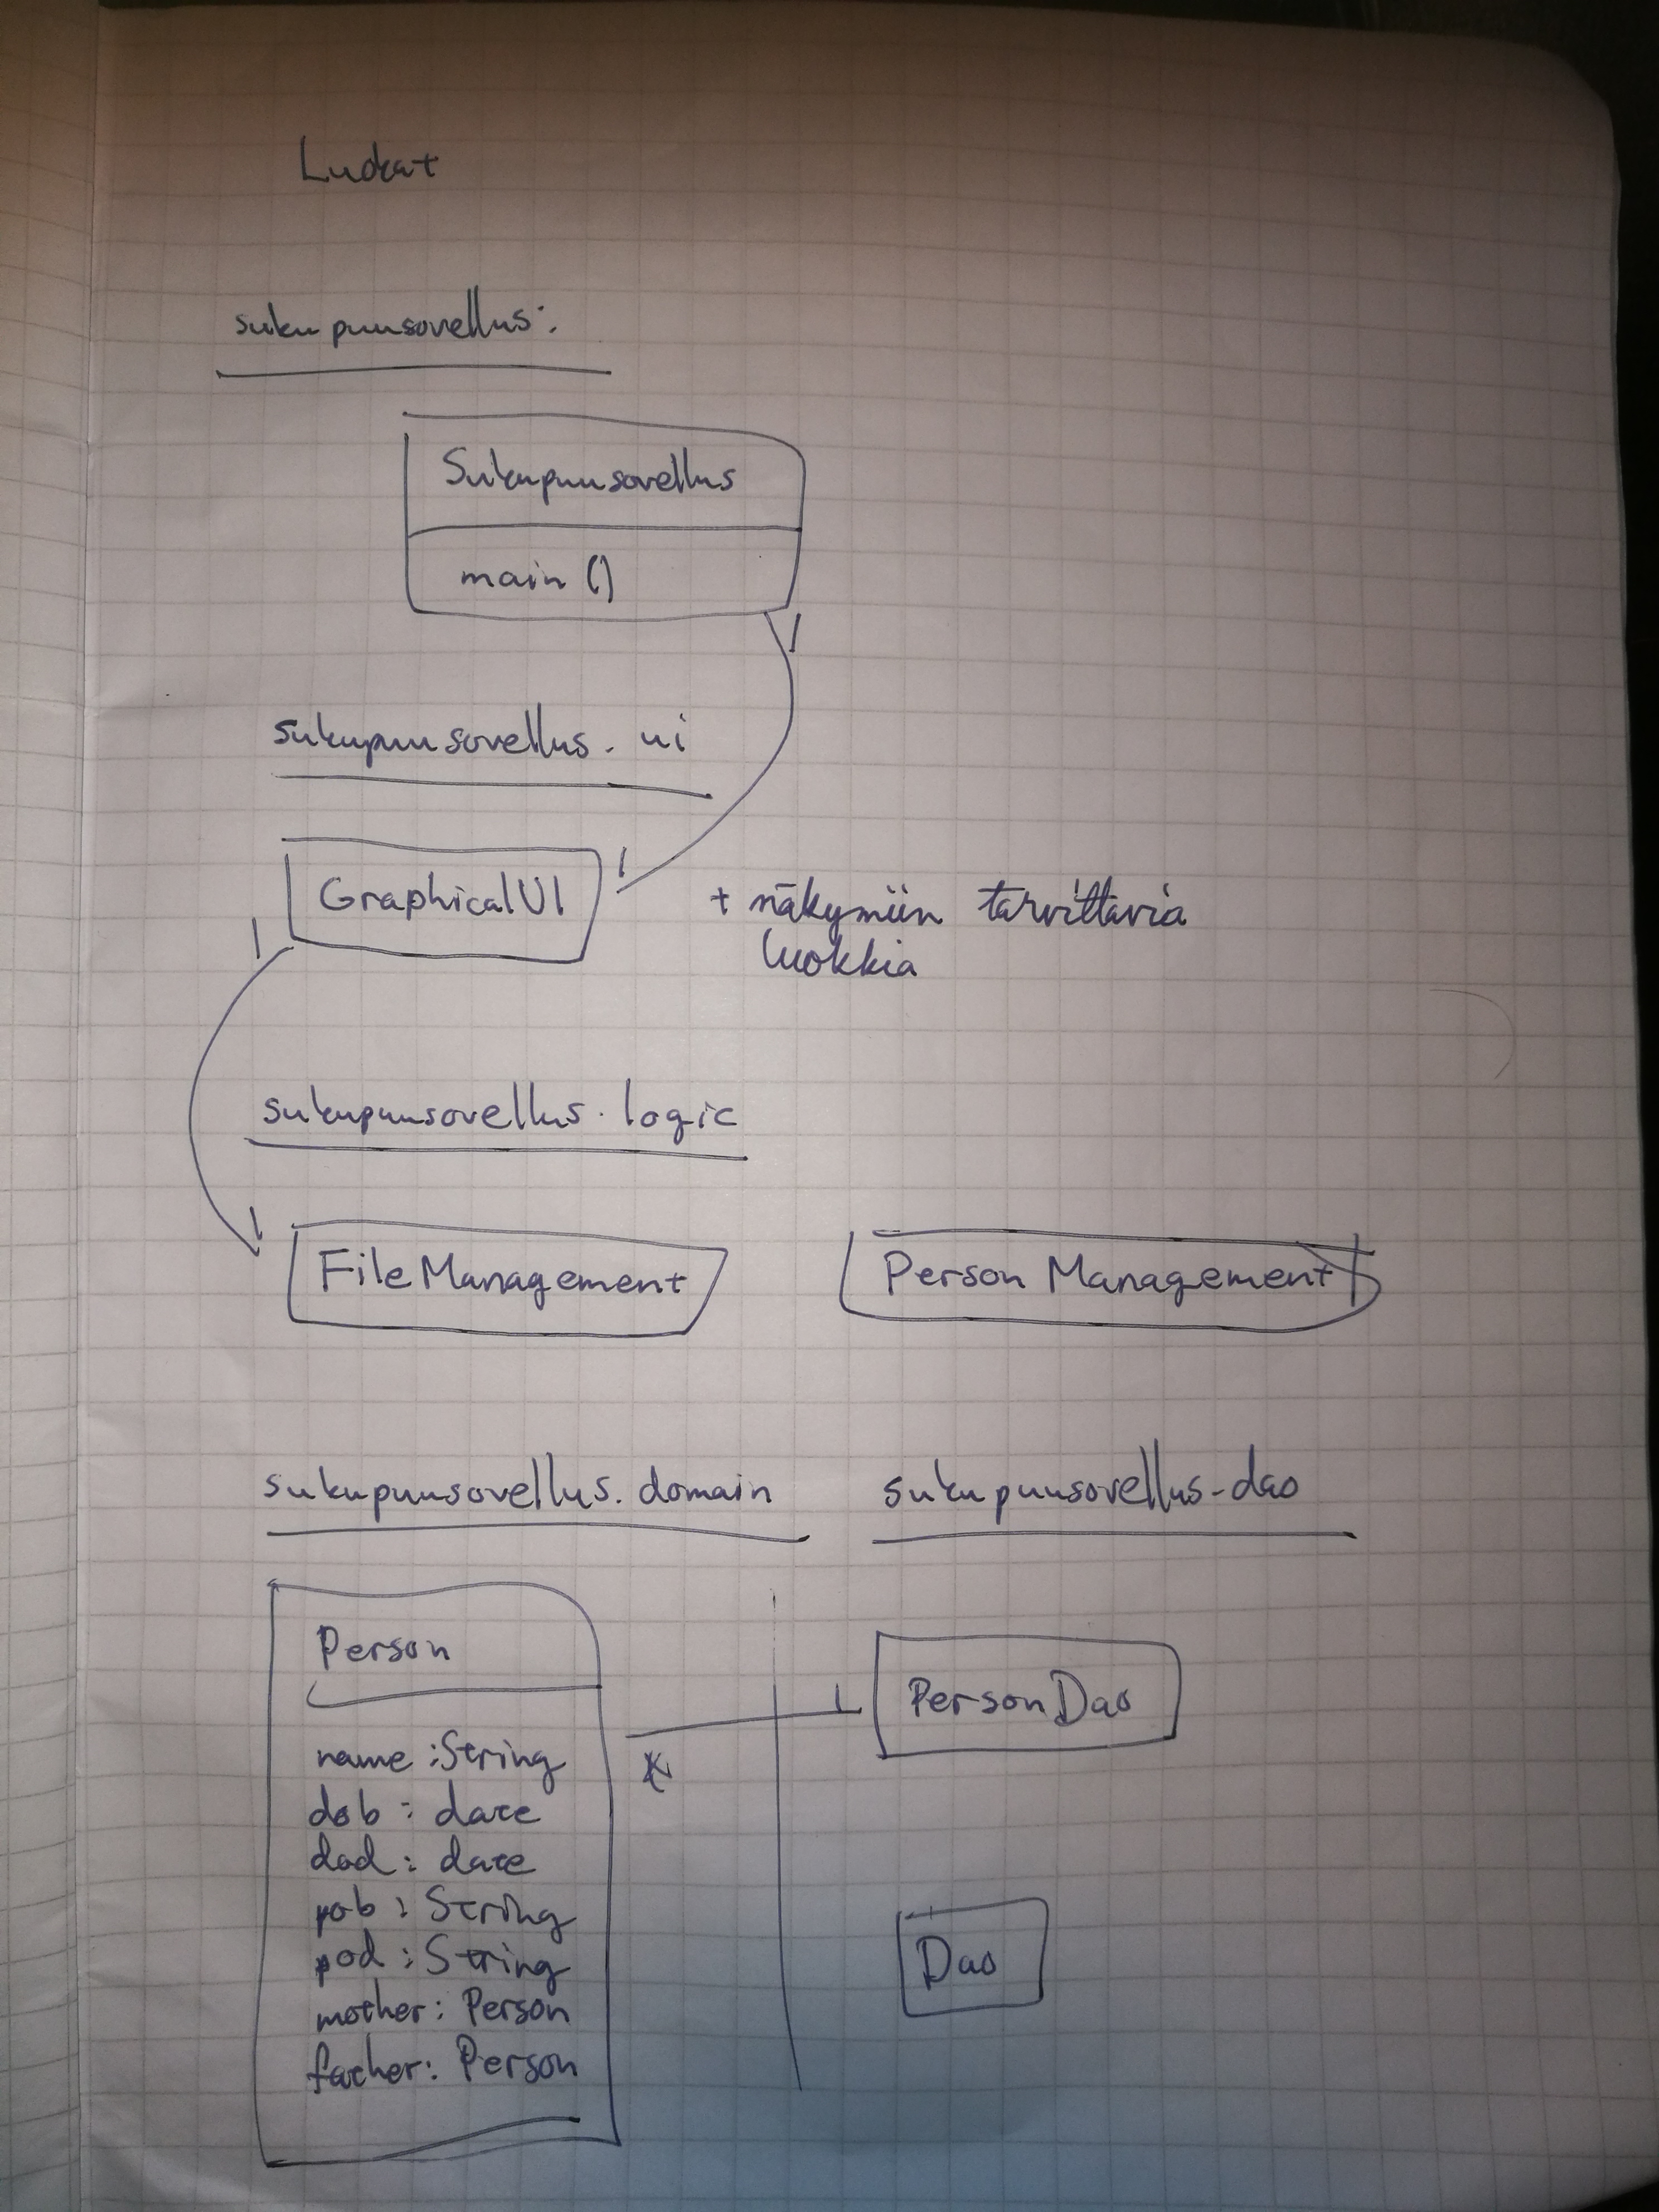 Luokat
sukupuusovellus:
Sukupuusovellus
main ()
1
sukupuusovellus. ui
1
GraphicalUI
+ näkymiin tarvittavia
luokkia
1
sukupuusovellus. logic
1
FileManagement
Person Management
sukupuusovellus. domain
sukupuusovellus-dao
Person
1
PersonDao
name : String
*
dob : date
dod : date
pob : String
pod : String
Dao
mother: Person
father: Person